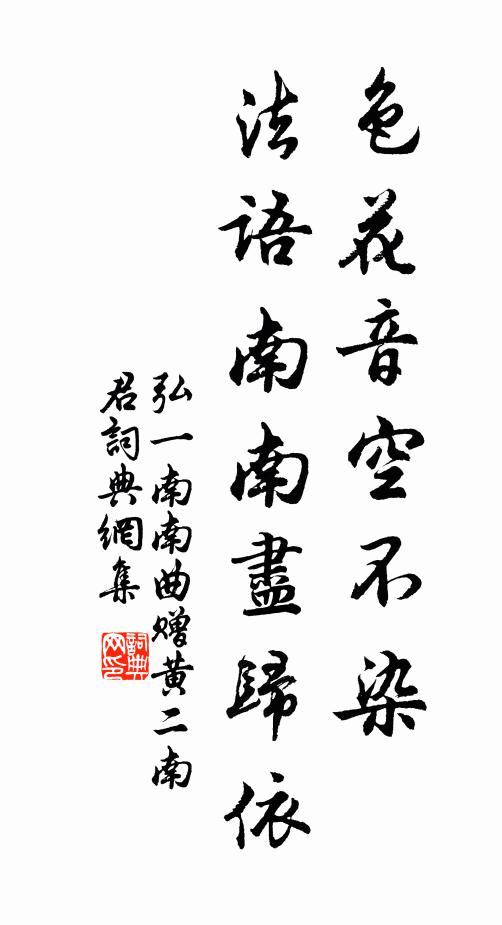 色花音空不染
法語南南盡歸依
弘一南南曲赠黄二南
君詞典網集
詞典
网印